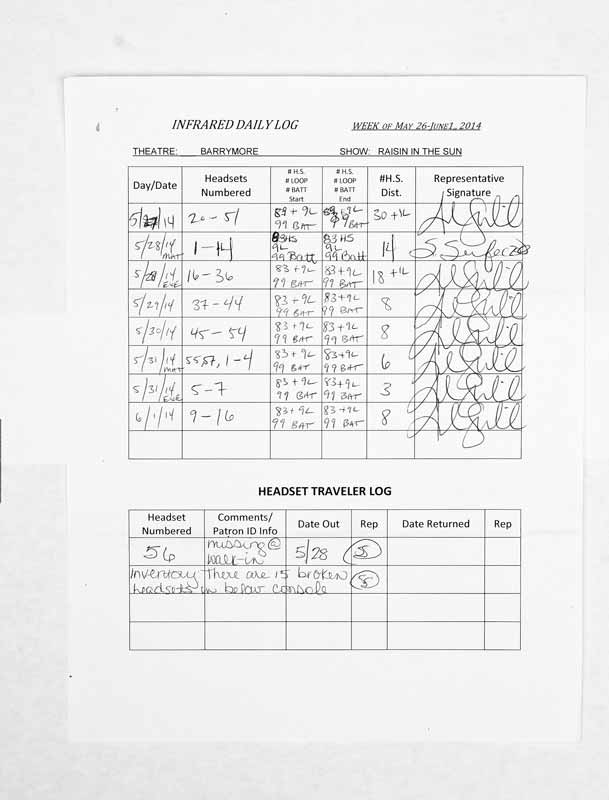 INFRARED DAILY LOG WEEK OF MAY 26-JUNE1, 2014
THEATRE: BARRYMORE SHOW: RAISIN IN THE SUN
Day/Date Headsets Numbered # H.S. # LOOP # BATT Start # H.S. # LOOP # BATT End #H.S. Dist. Representative Signature
5/27/14 20-51 89+9L 99 BAT 89+9L 99 BAT 30+1L
5/28/14 MAT 1-14 83HS 9L 99 Batt 83HS 9L 99 Batt 14
5/28/14 EVE 16-36 83+9L 99 BAT 83+9L 99 BAT 18+1L
5/29/14 37-44 83+9L 99 BAT 83+9L 99 BAT 8
5/30/14 45-54 83+9L 99 BAT 83+9L 99 BAT 8
5/31/14 MAT 55,57, 1-4 83+9L 99 BAT 83+9L 99 BAT 6
5/31/14 EVE 5-7 83+9L 99 BAT 83+9L 99 BAT 3
6/1/14 9-16 83+9L 99 BAT 83+9L 99 BAT 8
HEADSET TRAVELER LOG
Headset Numbered Comments/ Patron ID Info Date Out Rep Date Returned Rep
56 missing @ walk-in 5/28 SS
Inventory There are 15 broken SS
headsets in below console